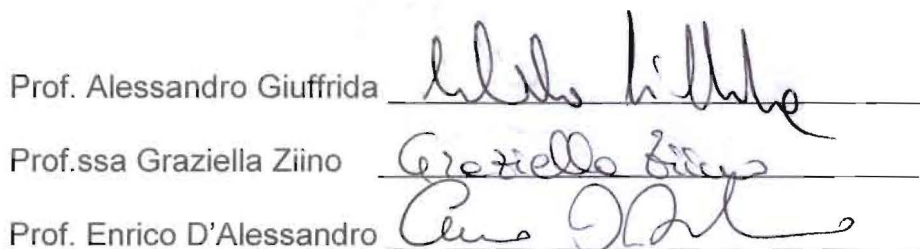 Prof. Alessandro Giuffrida
Prof.ssa Graziella Ziino Graziella Ziino
Prof. Enrico D'Alessandro